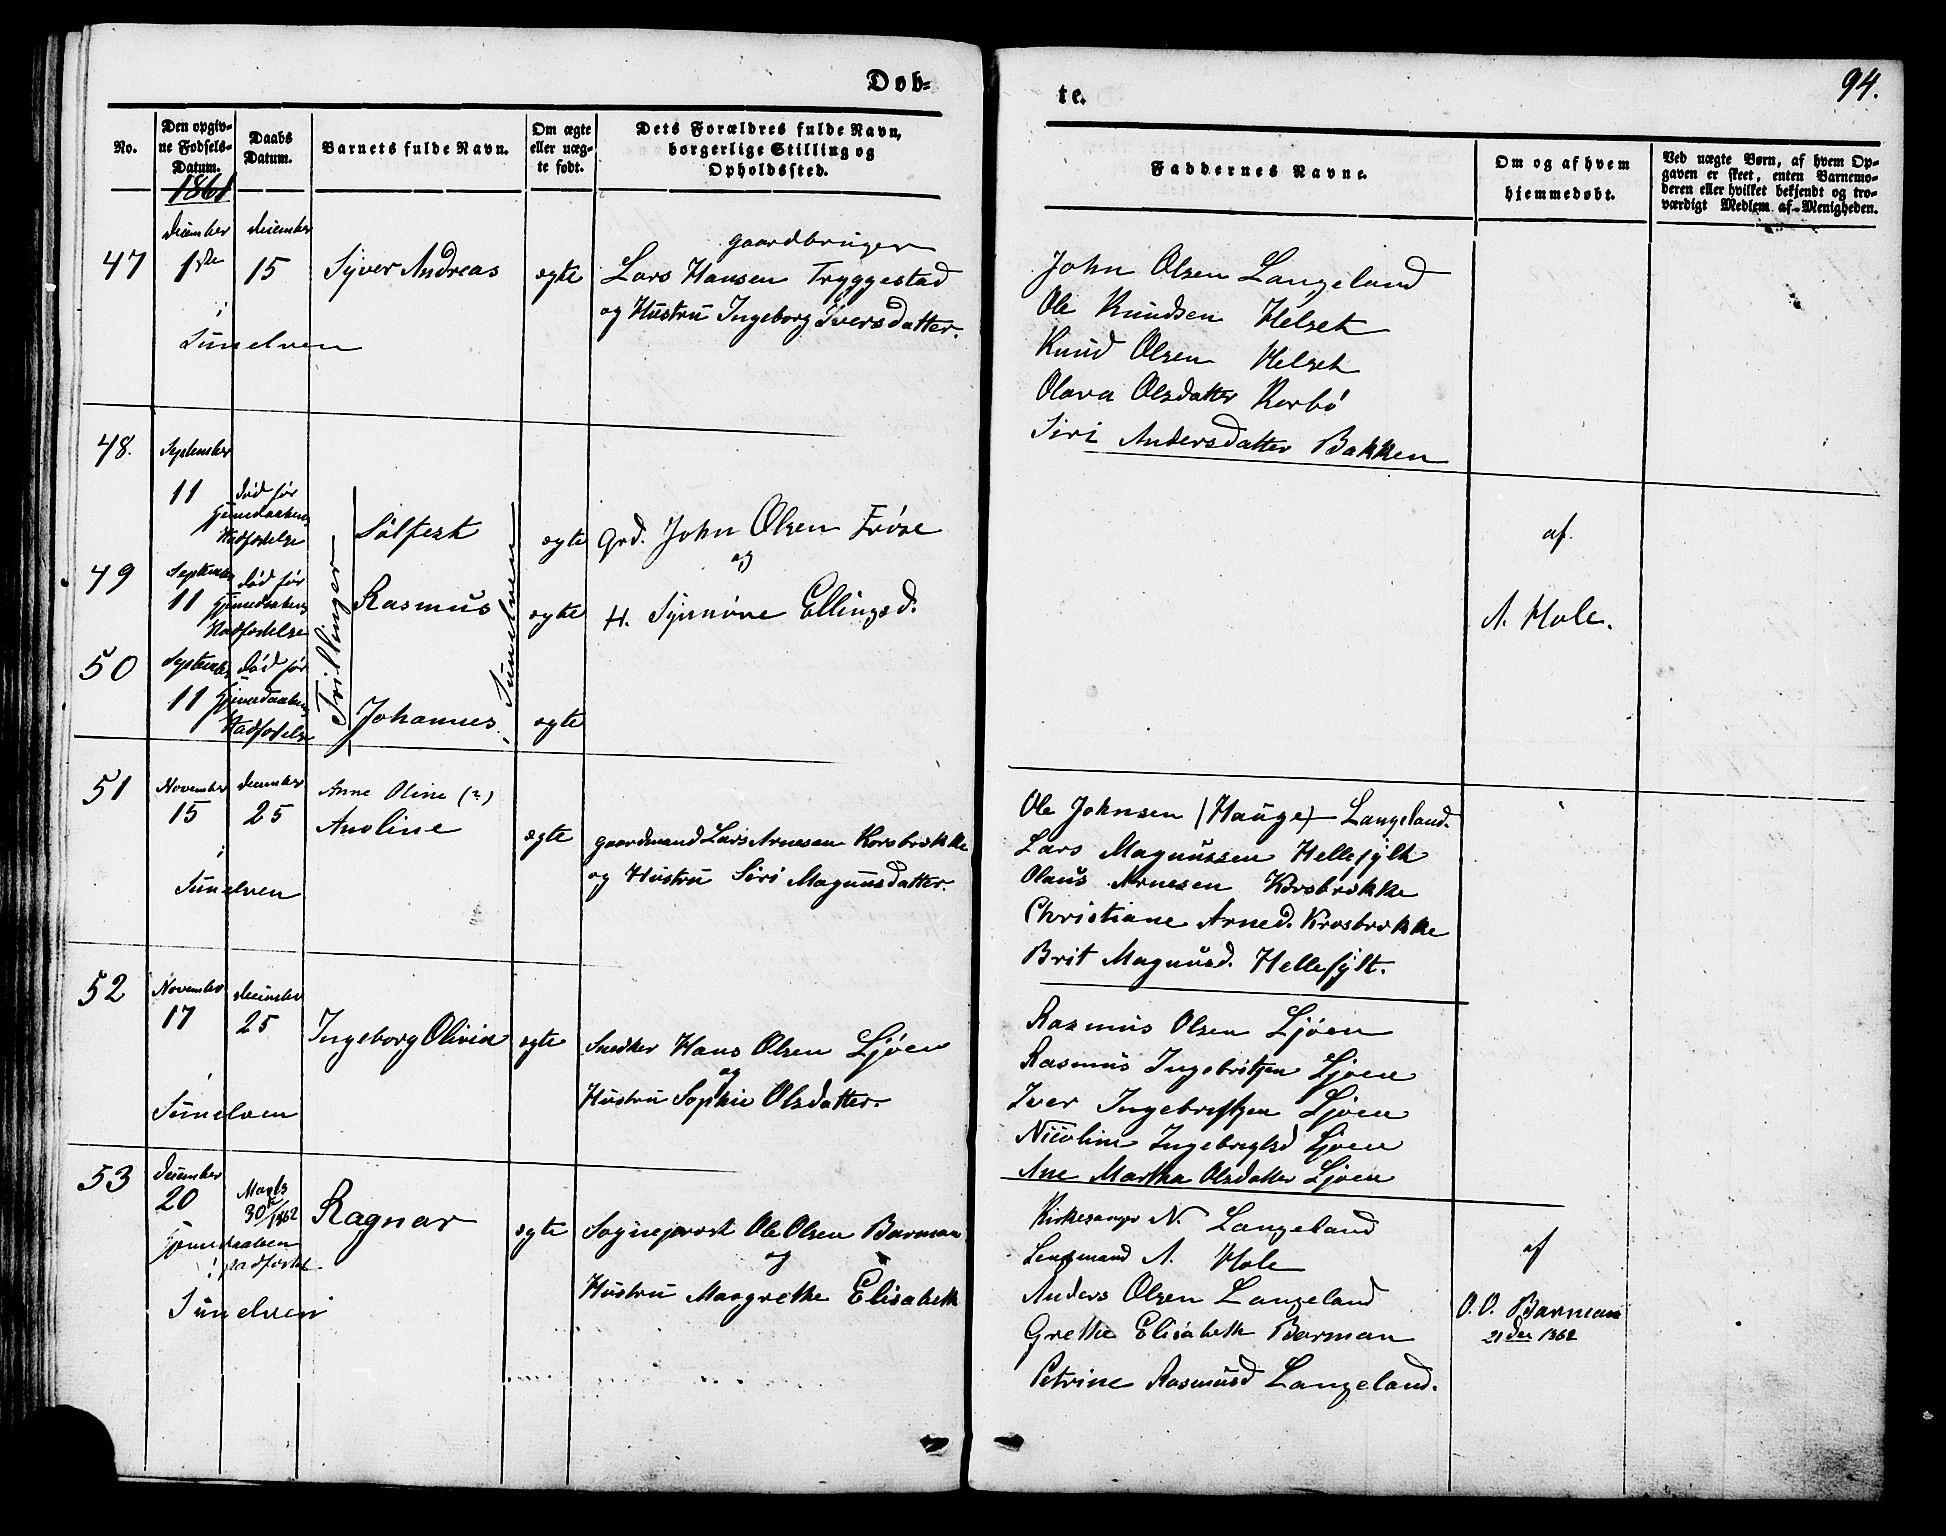 Døb-
te.
94.
No.
Den opgiv-
ne Fødsels-
Datum.
Daabs
Datum.
Barnets fulde Navn.
Om ægte
eller uæg-
te født.
Dets Forældres fulde Navn,
borgerlige Stilling og
Opholdssted.
Faddernes Navne.
Om og af hvem
hjemmedøbt.
Ved uægte Børn, af hvem Op-
gaven er skeet, enten Barnemo-
deren eller hvilket bekjendt og tro-
værdigt Medlem af Menigheden.
1861
47
December
1ste
December
15
i
Sunelven
Syver Andreas
ægte
gaardbruger
Lars Hansen Tryggestad
og Hustru Ingeborg Iversdatter.
John Olsen Langeland
Ole Knudsen Helset
Knud Olsen Helset
Olava Olsdatter Korbø
Siri Andersdatter Bakken
48.
September
11
død før
Hjemedaabens
Stadfæstelse
Trillinger
Sølfest
Sunelven
ægte
Grd. John Olsen Frøse
og
H. Synnøve Ellingsd.
af
A. Hole.
49
September
11
død før
Hjemedaabens
Stadfæstelse
Rasmus
ægte
50
September
11
død før
Hjemedaabens
Stadfæstelse
Johannes
ægte
51
November
15
December
25
i
Sunelven
Anne Oline (?)
Anoline
ægte
gaardmand Lars Arnesen Korsbrekke
og Hustru Siri Magnusdatter.
Ole Johnsen (Hauge) Langeland.
Lars Magnussen Hellesylt
Olaus Arnesen Korsbrekke
Christiane Arned. Krosbrekke
Brit Magnusd. Hellesylt.
52
November
17
December
25
i
Sunelven
Ingeborg Olivia
ægte
Snedker Hans Olsen Ljøen
og
Hustru Sophie Olsdatter.
Rasmus Olsen Ljøen
Rasmus Ingebritsen Ljøen
Iver Ingebrigtsen Ljøen
Nicoline Ingebrigtsd Ljøen
Ane Martha Olsdatter Ljøen
53
December
20
Marts
30te/1862
Hjemedaaben
stadfæstet
i
Sunelven
Ragnar
ægte
Sogneprest Ole Olsen Barman
og
Hustru Margrethe Elisabeth
Kirkesanger N. Langeland
Lensmand A. Hole
Anders Olsen Langeland
Grethe Elisabeth Barman
Petrine Rasmusd Langeland.
af
O.O. Barman
21 Dec 1862